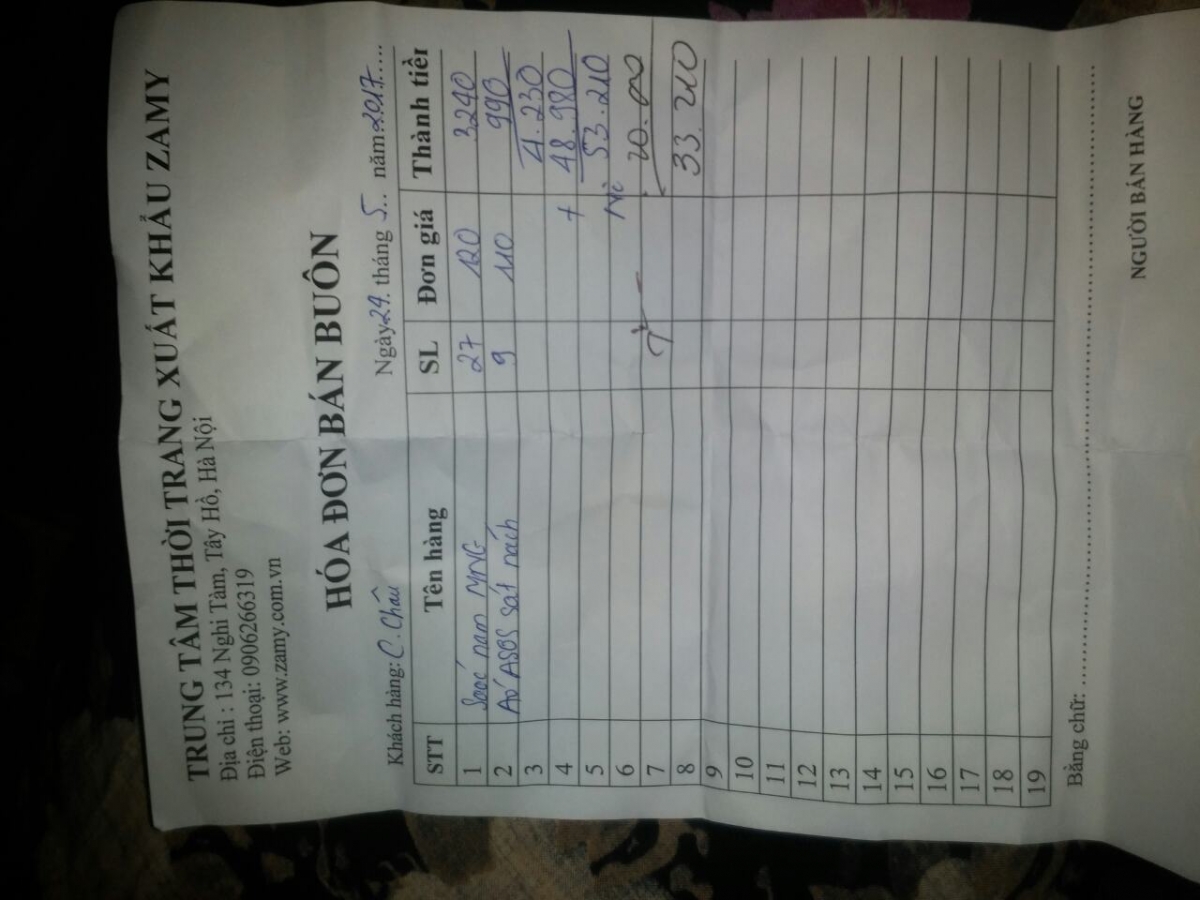 TRUNG TÂM THỜI TRANG XUẤT KHẨU ZAMY
Địa chỉ : 134 Nghi Tàm, Tây Hồ, Hà Nội
Điện thoại: 0906266319
Web: www.zamy.com.vn
HÓA ĐƠN BÁN BUÔN
Khách hàng: C. Châu Ngày 24. tháng 5.. năm 2017.....
STT Tên hàng SL Đơn giá Thành tiền
1 Sooc nam MNG 27 120 3240
2 Áo ASOS sát nách 9 110 990
3 4.230
4 + 48.980
5 53.210
6 20.000
7
8 33.210
9
10
11
12
13
14
15
16
17
18
19
Bằng chữ:
NGƯỜI BÁN HÀNG